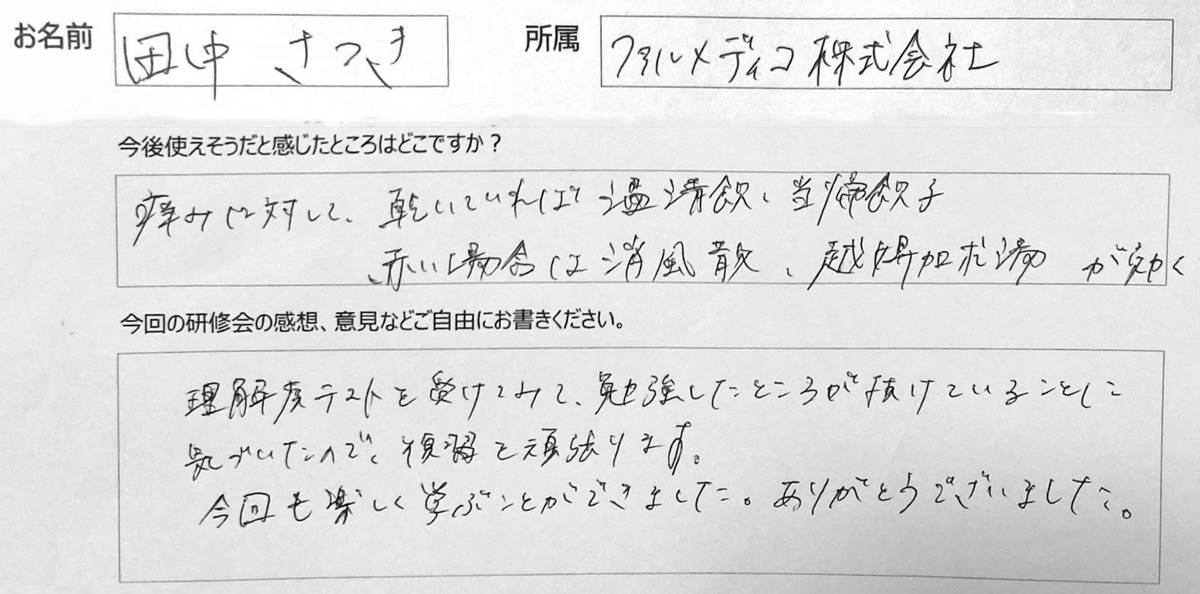 お名前 田中 さつき 所属 ファルメディコ株式会社
今後使えそうだと感じたところはどこですか？
痒みに対して、乾いていれば温清飲、当帰飲子
赤い場合は消風散、越婢加朮湯 が効く
今回の研修会の感想、意見などご自由にお書きください。
理解度テストを受けてみて、勉強したところが抜けていることに
気づいたので、復習を頑張ります。
今回も楽しく学ぶことができました。ありがとうございました。